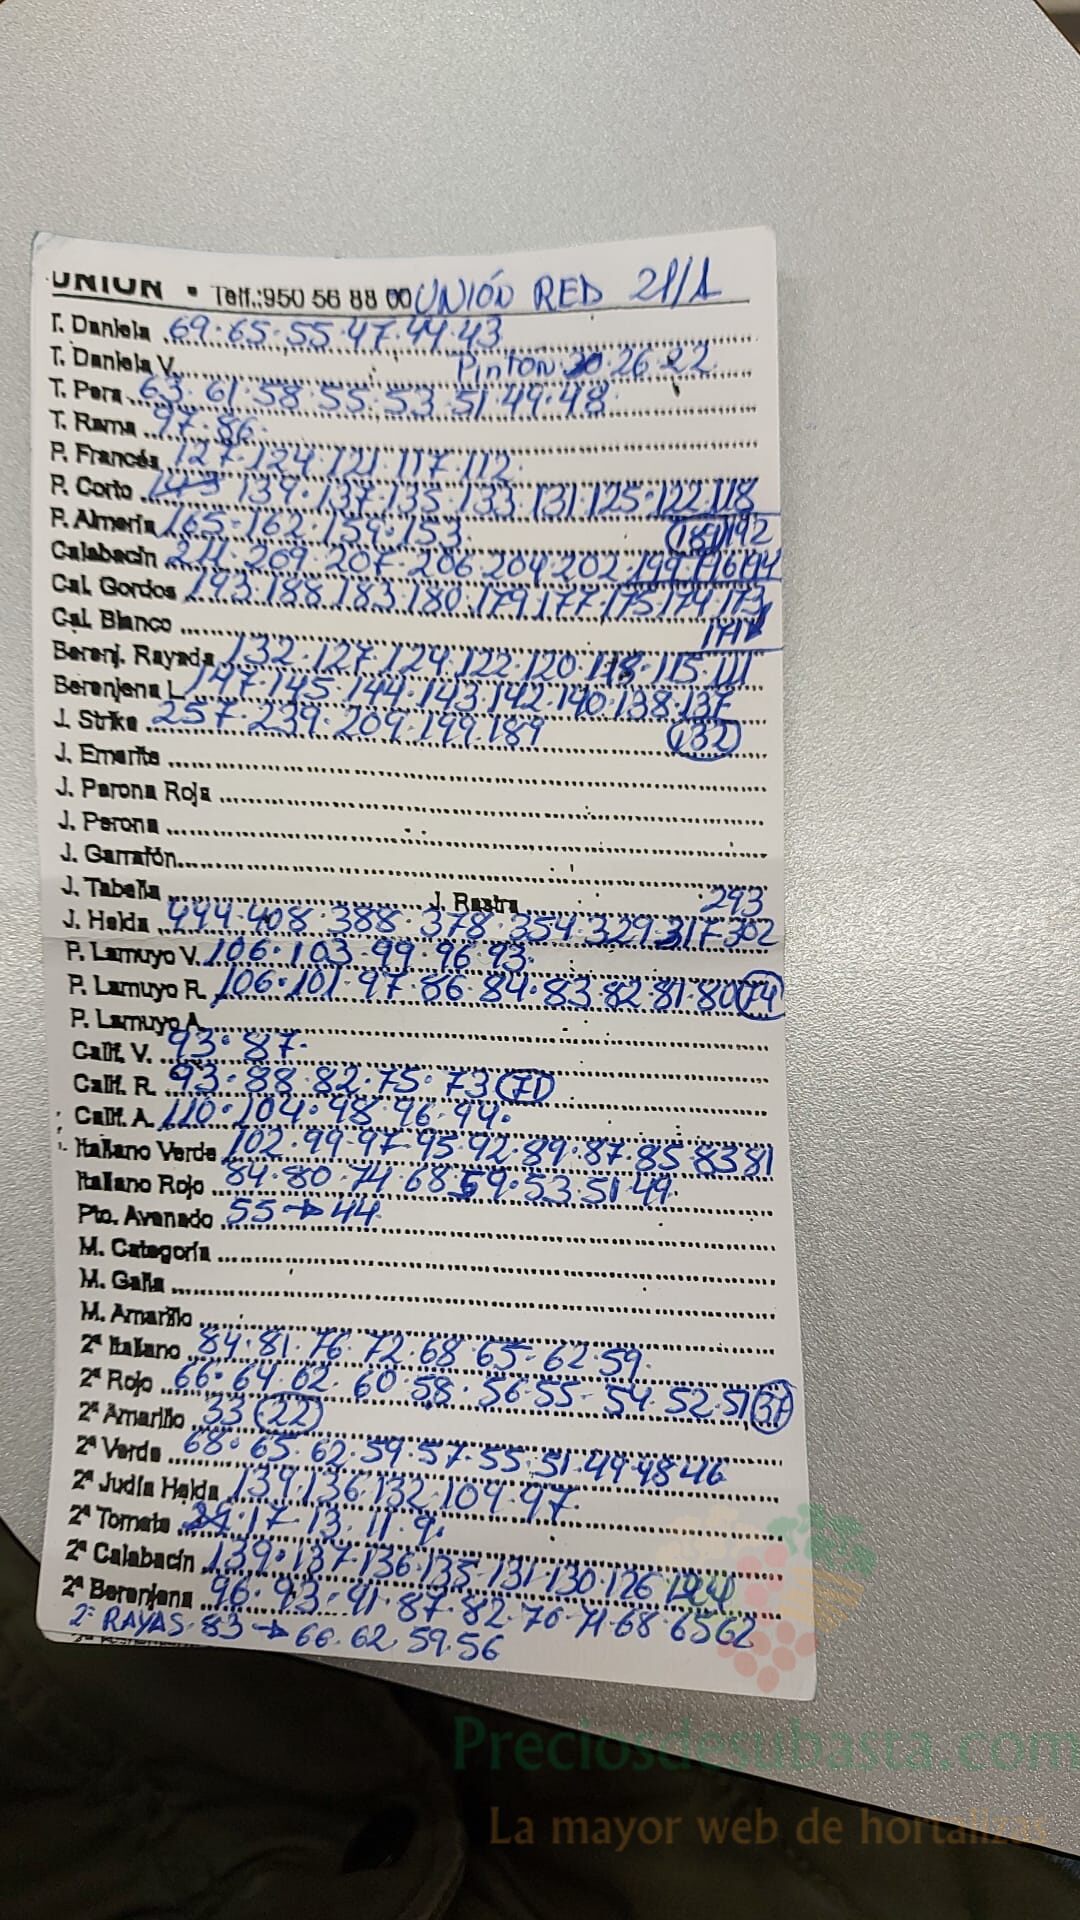 UNION • Telf.:950 56 88 00 UNIÓN RED 21/1
T. Daniela 69.65.55.47.44.43
T. Daniela V. Pinton 30.26.22
T. Pera 63.61.58.55.53.51.49.48
T. Rama 97.86.
P. Francés 127.124.121.117.112.
P. Corto 139.137.135.133.131.125.122.118
P. Almería 165-162.159.153. (181)192
Calabacín 211.209.207.206.204.202.199.196.194
Cal. Gordos 193.188.183.180.179.177.175.174.173
Cal. Blanco
Berenj. Rayada 132.127.124.122.120.118.115.111
Berenjena L 147.145.144.143.142.140.138.137
J. Strike 257.239.209.199.189 (132)
J. Emerite
J. Perona Roja
J. Perona
J. Garrafón
J. Tabella J. Rastra 293
J. Helda 444.408.388.378.354.329.317.302
P. Lamuyo V. 106.103.99.96.93.
P. Lamuyo R. 106.101.97.86.84.83.82.81.80(74)
P. Lamuyo A.
Calif. V. 93.87.
Calif. R. 93.88.82.75.73(71)
Calif. A. 110.104.98.96.94.
Italiano Verde 102.99.97.95.92.89.87.85.83 81
Italiano Rojo 84.80.74.68.59.53.51.49.
Pto. Avanado 55→44
M. Categoría
M. Galia
M. Amarillo
2ª Italiano 84.81.76.72.68.65-62.59.
2ª Rojo 66.64.62.60.58.56.55-54.52.51(37)
2ª Amarillo 33(22)
2ª Verde 68.65.62.59.57.55.51.49.48 46
2ª Judía Helda 139.136.132.109.97.
2ª Tomate 17-13.11.9.
2ª Calabacín 139.137-136.135-131-130.126
2ª Berenjena 96.93.91.87.82.76-71-68.65 62
2ª RAYAS.83→66.62.59.56
Preciosdesubasta.com
La mayor web de hortalizas